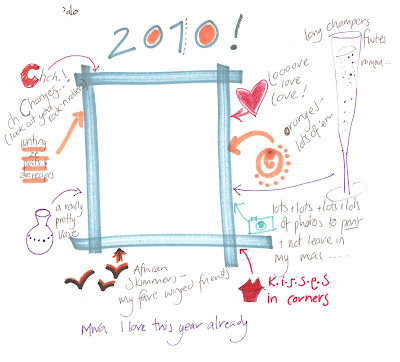 'alo
2010!
Chch..!
ch Changes...
(look out yeld
rock'n rollers)
writing
of
posts &
recipes
a really
pretty
vase
long champers
flutes
mmm...
Loooove
love
love!
oranges -
lots of 'em
lots + lots + lots + lots
of photos to print
& not leave in
my mac....
African
Skimmers -
my fave winged friends
K.i.s.s.e.s
in corners
Mwa I love this year already